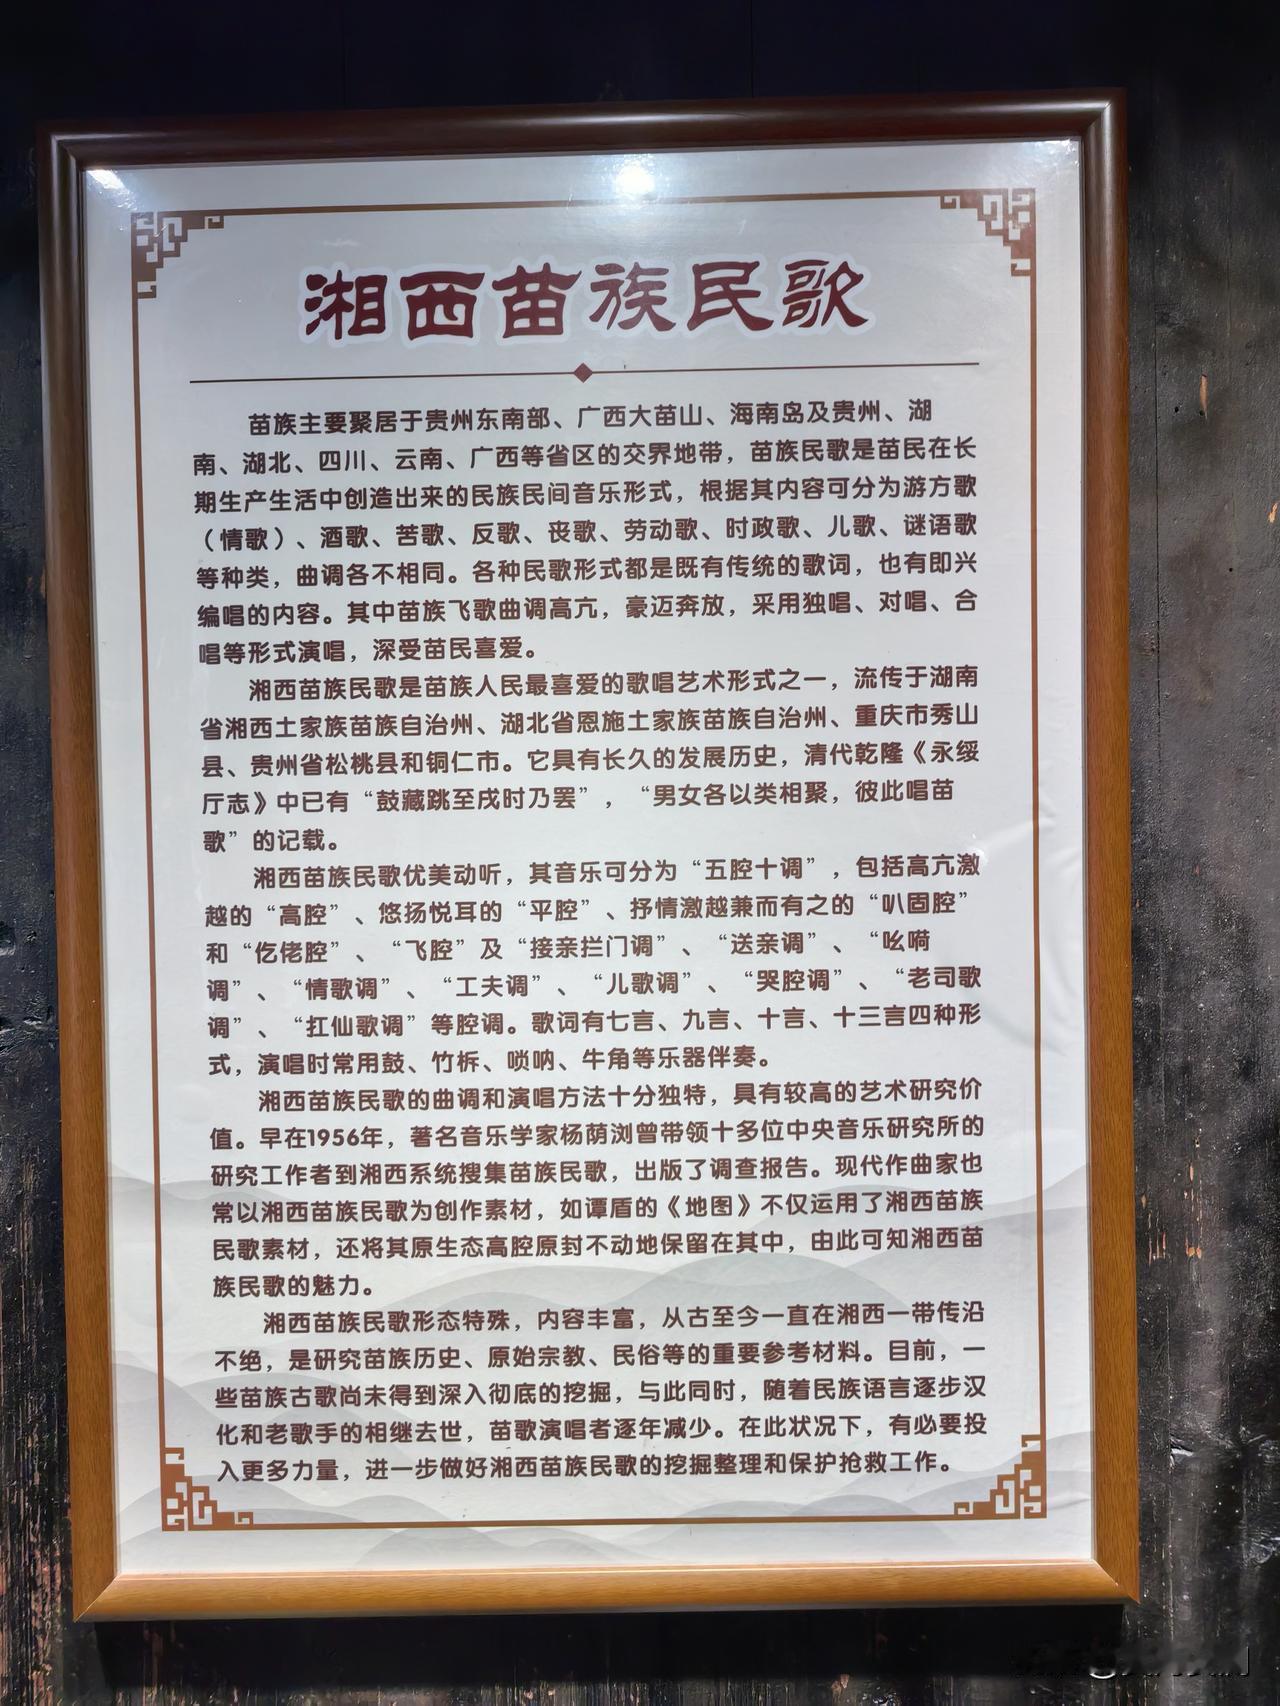 湘西苗族民歌
苗族主要聚居于贵州东南部、广西大苗山、海南岛及贵州、湖
南、湖北、四川、云南、广西等省区的交界地带，苗族民歌是苗民在长
期生产生活中创造出来的民族民间音乐形式，根据其内容可分为游方歌
（情歌）、酒歌、苦歌、反歌、丧歌、劳动歌、时政歌、儿歌、谜语歌
等种类，曲调各不相同。各种民歌形式都是既有传统的歌词，也有即兴
编唱的内容。其中苗族飞歌曲调高亢，豪迈奔放，采用独唱、对唱、合
唱等形式演唱，深受苗民喜爱。
湘西苗族民歌是苗族人民最喜爱的歌唱艺术形式之一，流传于湖南
省湘西土家族苗族自治州、湖北省恩施土家族苗族自治州、重庆市秀山
县、贵州省松桃县和铜仁市。它具有长久的发展历史，清代乾隆《永绥
厅志》中已有“鼓藏跳至戌时乃罢”，“男女各以类相聚，彼此唱苗
歌”的记载。
湘西苗族民歌优美动听，其音乐可分为“五腔十调”，包括高亢激
越的“高腔”、悠扬悦耳的“平腔”、抒情激越兼而有之的“叭固腔”
和“仡佬腔”、“飞腔”及“接亲拦门调”、“送亲调”、“吆嗬
调”、“情歌调”、“工夫调”、“儿歌调”、“哭腔调”、“老司歌
调”、“扛仙歌调”等腔调。歌词有七言、九言、十言、十三言四种形
式，演唱时常用鼓、竹柝、唢呐、牛角等乐器伴奏。
湘西苗族民歌的曲调和演唱方法十分独特，具有较高的艺术研究价
值。早在1956年，著名音乐学家杨荫浏曾带领十多位中央音乐研究所的
研究工作者到湘西系统搜集苗族民歌，出版了调查报告。现代作曲家也
常以湘西苗族民歌为创作素材，如谭盾的《地图》不仅运用了湘西苗族
民歌素材，还将其原生态高腔原封不动地保留在其中，由此可知湘西苗
族民歌的魅力。
湘西苗族民歌形态特殊，内容丰富，从古至今一直在湘西一带传沿
不绝，是研究苗族历史、原始宗教、民俗等的重要参考材料。目前，一
些苗族古歌尚未得到深入彻底的挖掘，与此同时，随着民族语言逐步汉
化和老歌手的相继去世，苗歌演唱者逐年减少。在此状况下，有必要投
入更多力量，进一步做好湘西苗族民歌的挖掘整理和保护抢救工作。